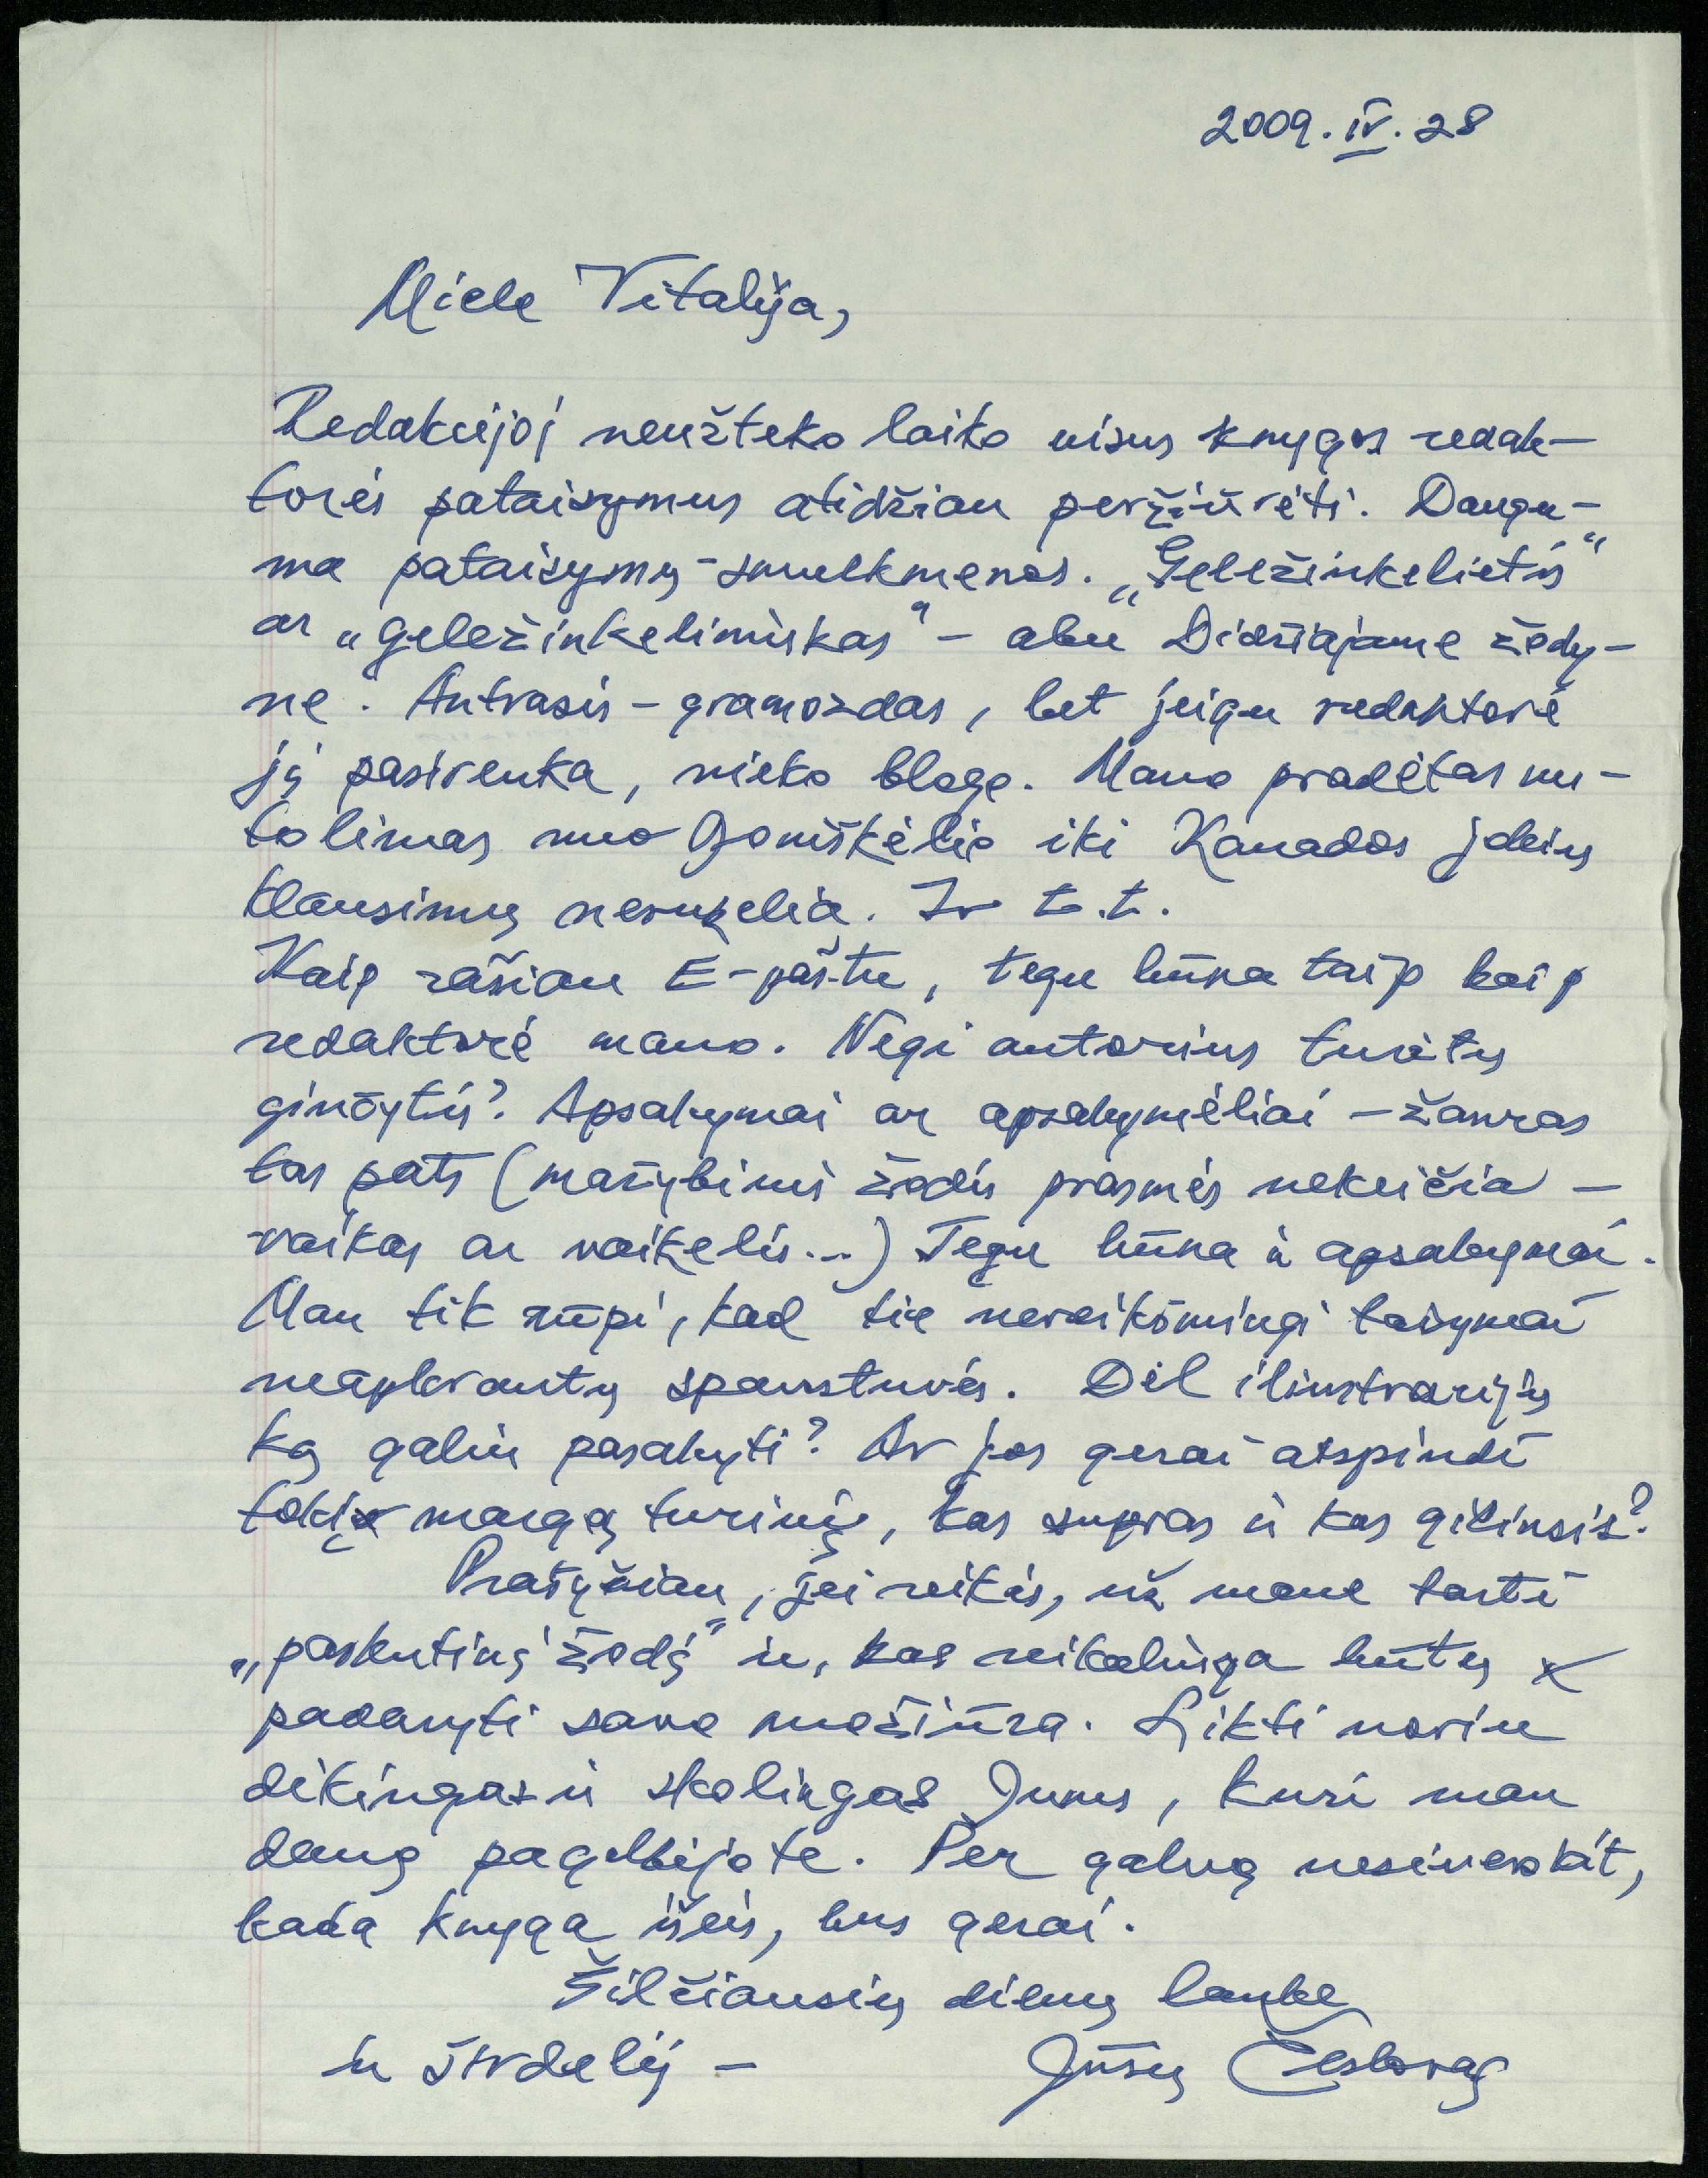 2009.IV.28
Miela Vitalija,
Redakcijoj neužteko laiko visus knygos redak-
torės pataisymus atidžiau peržiūrėti. Daugu-
ma pataisymų - smulkmenos. „Geležinkelietis“
ar „geležinkeliniņkas“ - abu Didžiajame žody-
ne. Antrasis - gramozdas, bet jeigu redaktorė
jį pasirenka, nieko blogo. Mano pradėtas nu-
tolimas nuo Joniškėlio iki Kanados jokių
klausimų nesukelia. Ir t.t.
Kaip rašiau E-paštu, tegu būna taip kaip
redaktorė mano. Negi autorius turėtų
ginčytis? Apsakymai ar apsakymėliai - žanras
tas pats (mažybinis žodis prasmės nekeičia -
vaikas ar vaikelis...) Tegu būna ir apsakymai.
Man tik rūpi, kad tie nereikšmingi taisymai
neapkrautų spaustuvės. Dėl iliustracijų
ką galiu pasakyti? Ar jos gerai atspindi
tokį margą turinį, kas supras ir kas gilinsis?
Prašyčiau, jei reikės, už mane tarti
„paskutinį žodį“ ir, kas reikalinga būtų
padaryti savo nuožiūra. Likti noriu
dėkingas ir skolingas Jums, kuri man
daug pagelbėjote. Per galvą nesiverskit,
kada knyga išeis, bus gerai.
Šilčiausių dienų lauke
ir širdelėj - Jūsų Česlovas